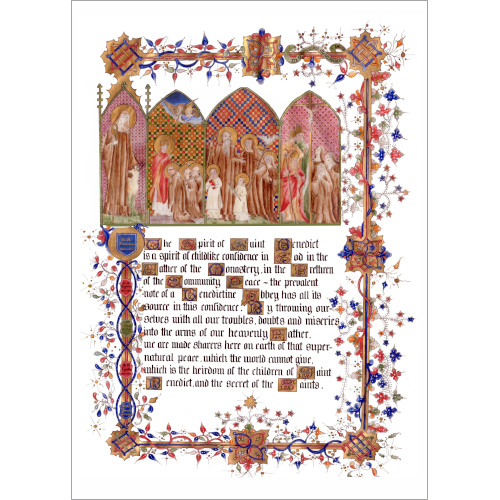 The Spirit of Saint Benedict
is a spirit of childlike confidence in God in the
Father of the Monastery, in the Brethren
of the Community Peace ~ the prevalent
note of a Benedictine Abbey has all its
source in this confidence. By throwing our-
selves with all our troubles, doubts and miseries
into the arms of our heavenly Father,
we are made sharers here on earth of that super-
natural peace, which the world cannot give,
which is the heirdom of the children of Saint
Benedict, and the secret of the Saints.